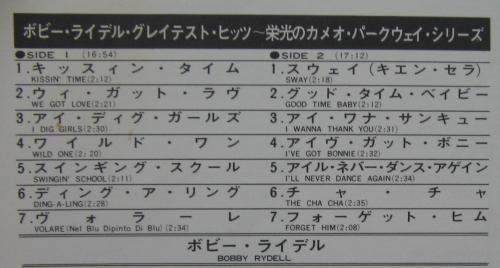 ボビー・ライデル・グレイテスト・ヒッツ〜栄光のカメオ・パークウェイ・シリーズ
●SIDE 1 (16:54)
1.キッスィン・タイム
KISSIN' TIME(2:12)
2.ウィ・ガット・ラヴ
WE GOT LOVE(2:21)
3.アイ・ディグ・ガールズ
I DIG GIRLS(2:30)
4.ワイルド・ワン
WILD ONE(2:20)
5.スインギング・スクール
SWINGIN' SCHOOL(2:11)
6.ディング・ア・リング
DING-A-LING(2:28)
7.ヴォラーレ
VOLARE(Nel Blu Dipinto Di Blu)(2:34)
●SIDE 2 (17:12)
1.スウェイ(キエン・セラ)
SWAY(2:18)
2.グッド・タイム・ベイビー
GOOD TIME BABY(2:12)
3.アイ・ワナ・サンキュー
I WANNA THANK YOU(2:31)
4.アイヴ・ガット・ボニー
I'VE GOT BONNIE(2:32)
5.アイル・ネバー・ダンス・アゲイン
I'LL NEVER DANCE AGAIN(2:34)
6.チャ・チャ
THE CHA CHA(2:35)
7.フォーゲット・ヒム
FORGET HIM(2:08)
ボビー・ライデル
BOBBY RYDELL